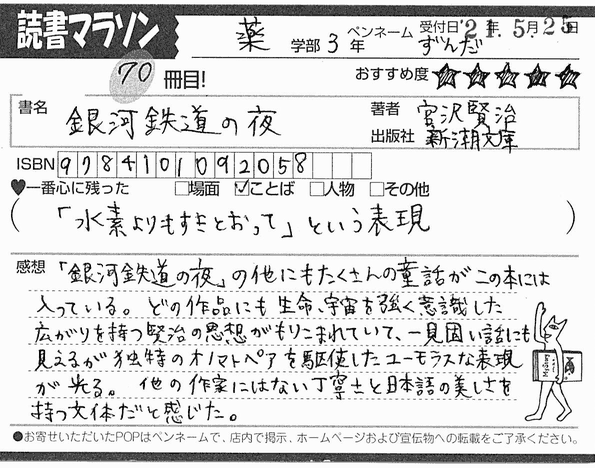 読書マラソン
薬 学部 3 年 ペンネーム ずんだ 受付日 '21年 5月 25日
70 冊目!
おすすめ度 ★★★★★
書名 銀河鉄道の夜
著者 宮沢賢治
出版社 新潮文庫
ISBN 9784101092058
♥一番心に残った □場面 ☑ことば □人物 □その他
(「水素よりもすきとおって」という表現)
感想 「銀河鉄道の夜」の他にもたくさんの童話がこの本には
入っている。どの作品にも生命、宇宙を強く意識した
広がりを持つ賢治の思想がもりこまれていて、一見固い話にも
見えるが独特のオノマトペアを駆使したユーモラスな表現
が光る。他の作家にはない丁寧さと日本語の美しさを
持つ文体だと感じた。
●お寄せいただいたPOPはペンネームで、店内で掲示、ホームページおよび宣伝物への転載をご了承ください。